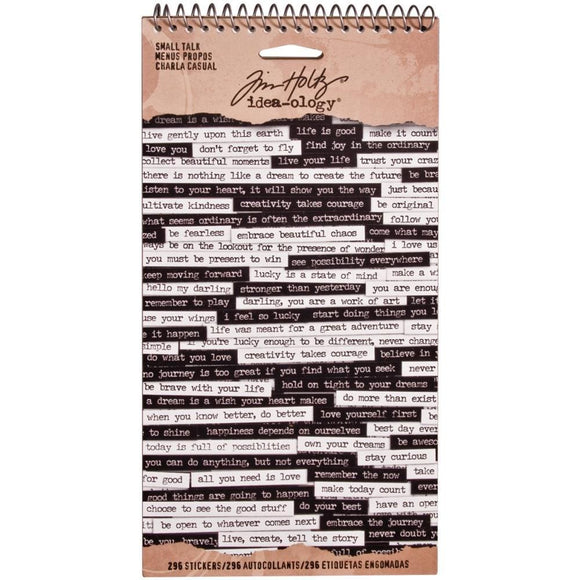 SMALL TALK
MENUS PROPOS
CHARLA CASUAL
Tim Holtz
idea-ology®
dream is a wish makes
live gently upon this earth life is good make it count
love you don't forget to fly find joy in the ordinary
collect beautiful moments live your life trust your craz
there is nothing like a dream to create the future be bra
listen to your heart, it will show you the way just becau
ultivate kindness creativity takes courage be original
what seems ordinary is often the extraordinary follow yo
zed be fearless embrace beautiful chaos come what may
ways be on the lookout for the presence of wonder i love us
you must be present to win see possibility everywhere
keep moving forward lucky is a state of mind make a wi
hello my darling stronger than yesterday you are enoug
remember to play darling, you are a work of art let it
use your wings i feel so lucky start doing things you lo
e it happen life was meant for a great adventure stay
simple if you're lucky enough to be different, never change
do what you love creativity takes courage believe in y
no journey is too great if you find what you seek never
be brave with your life hold on tight to your dreams
a dream is a wish your heart makes do more than exist
when you know better, do better love yourself first be
to shine happiness depends on ourselves best day ever
today is full of possiblities own your dreams be aweso
you can do anything, but not everything stay curious
for good all you need is love remember the now take
good things are going to happen make today count ever
choose to see the good stuff do your best have an
it be open to whatever comes next embrace the journey
bravely live, create, tell the story never doubt y
full of possibl
296 STICKERS/296 AUTOCOLLANTS/296 ETIQUETAS ENGOMADAS